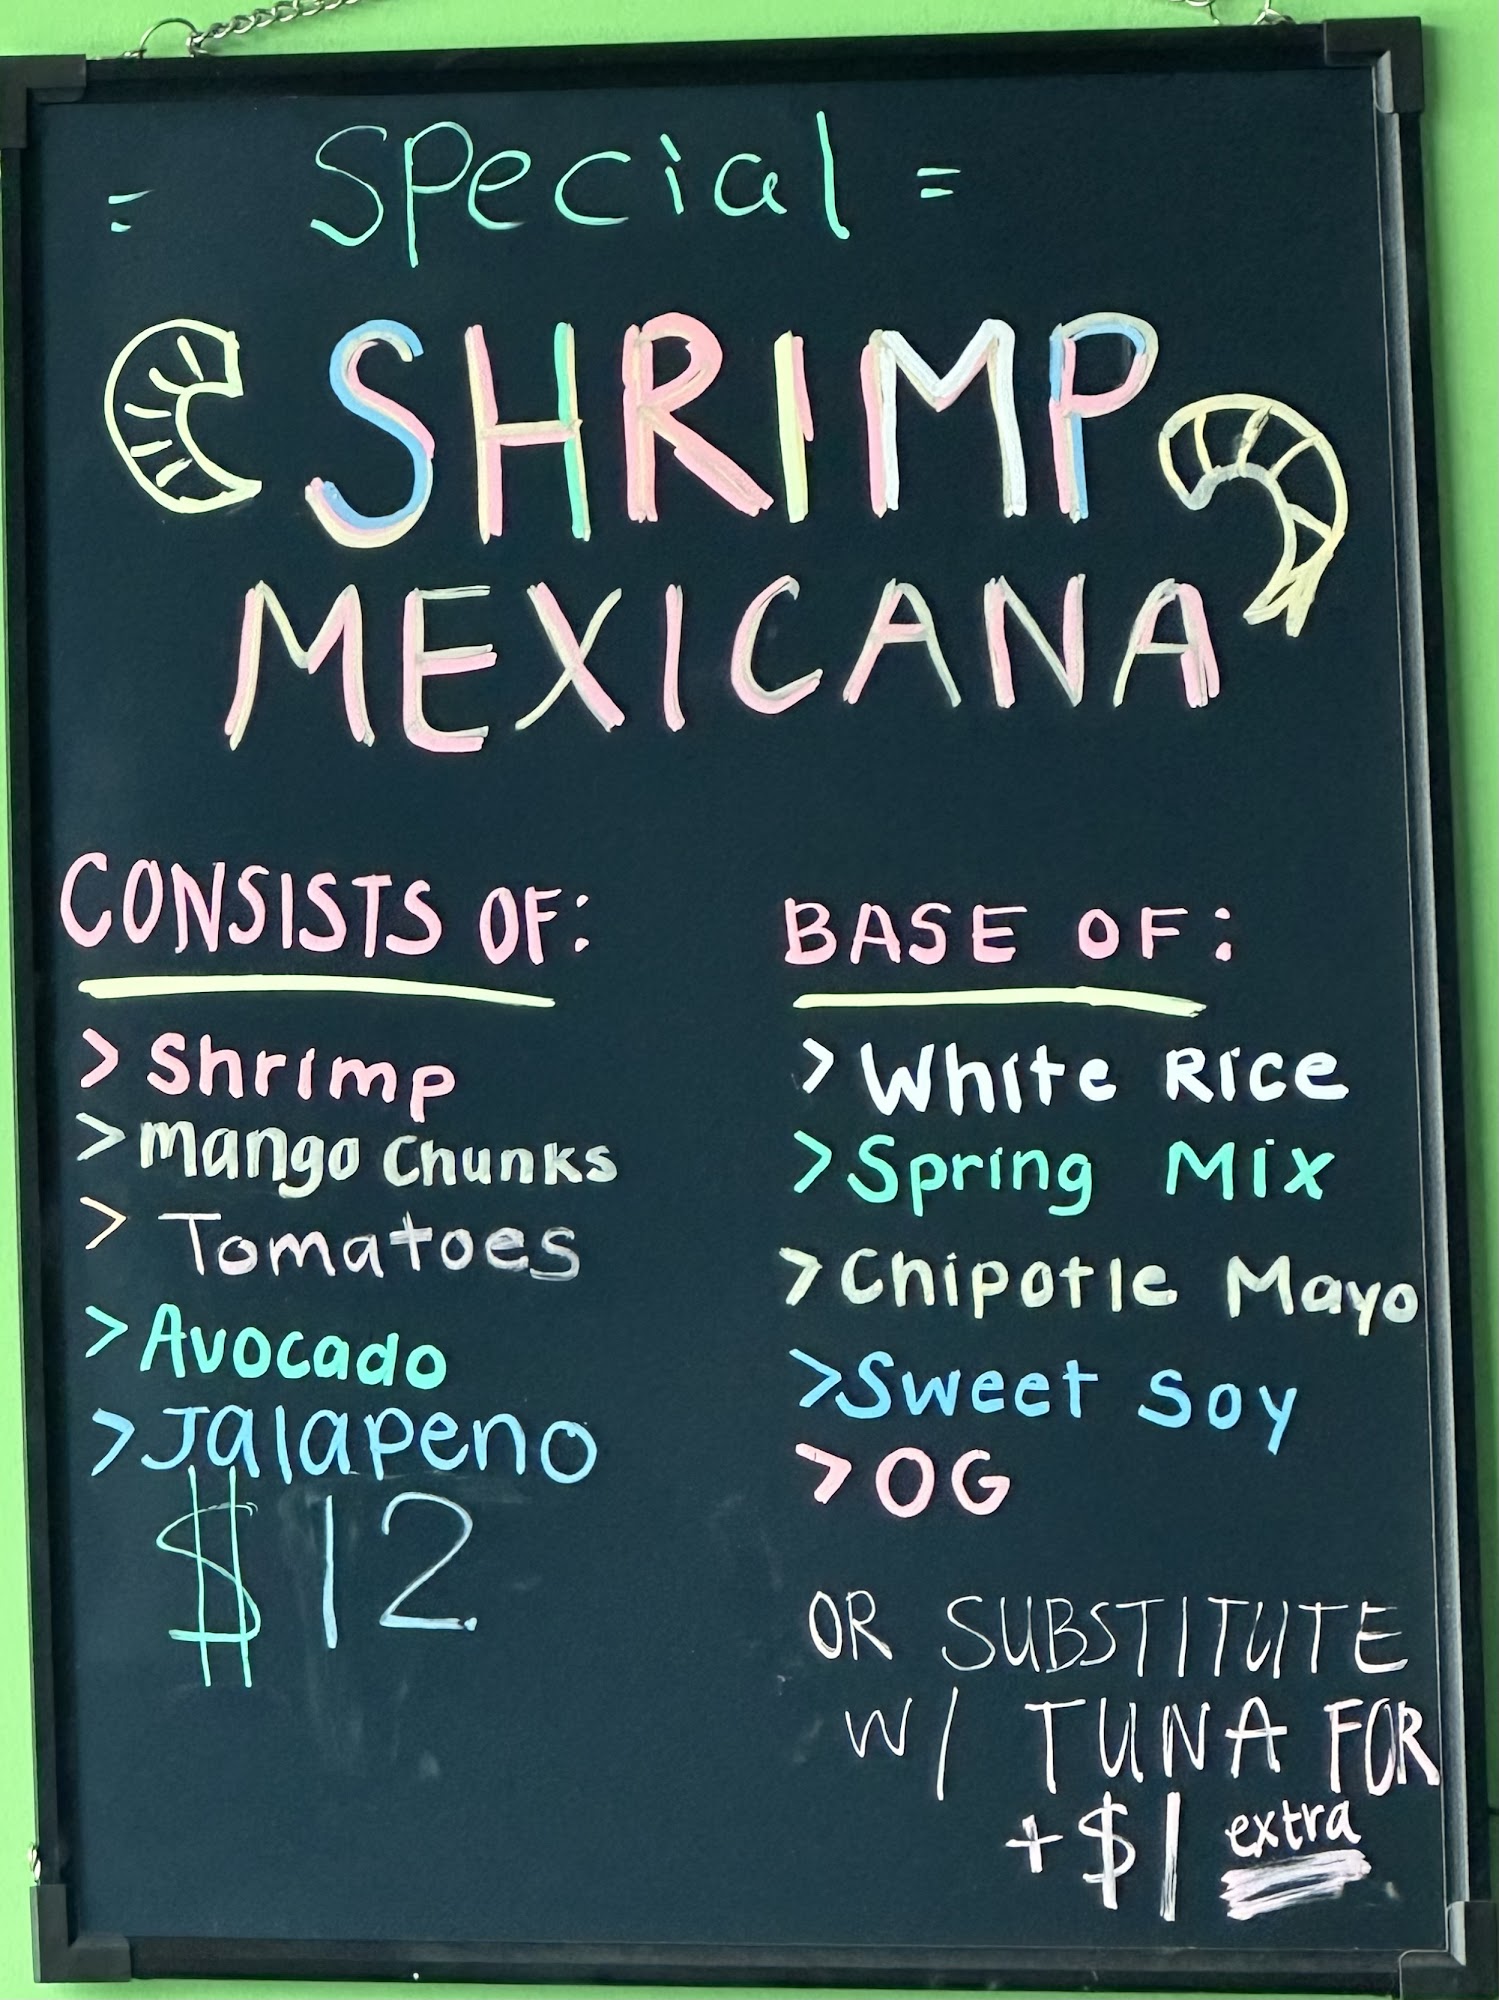 = Special =
SHRIMP
MEXICANA
CONSISTS OF:
> Shrimp
> Mango Chunks
> Tomatoes
> Avocado
> Jalapeno
$12
BASE OF:
> White Rice
> Spring Mix
> Chipotle Mayo
> Sweet Soy
> OG
OR SUBSTITUTE
W/ TUNA FOR
+$1 extra